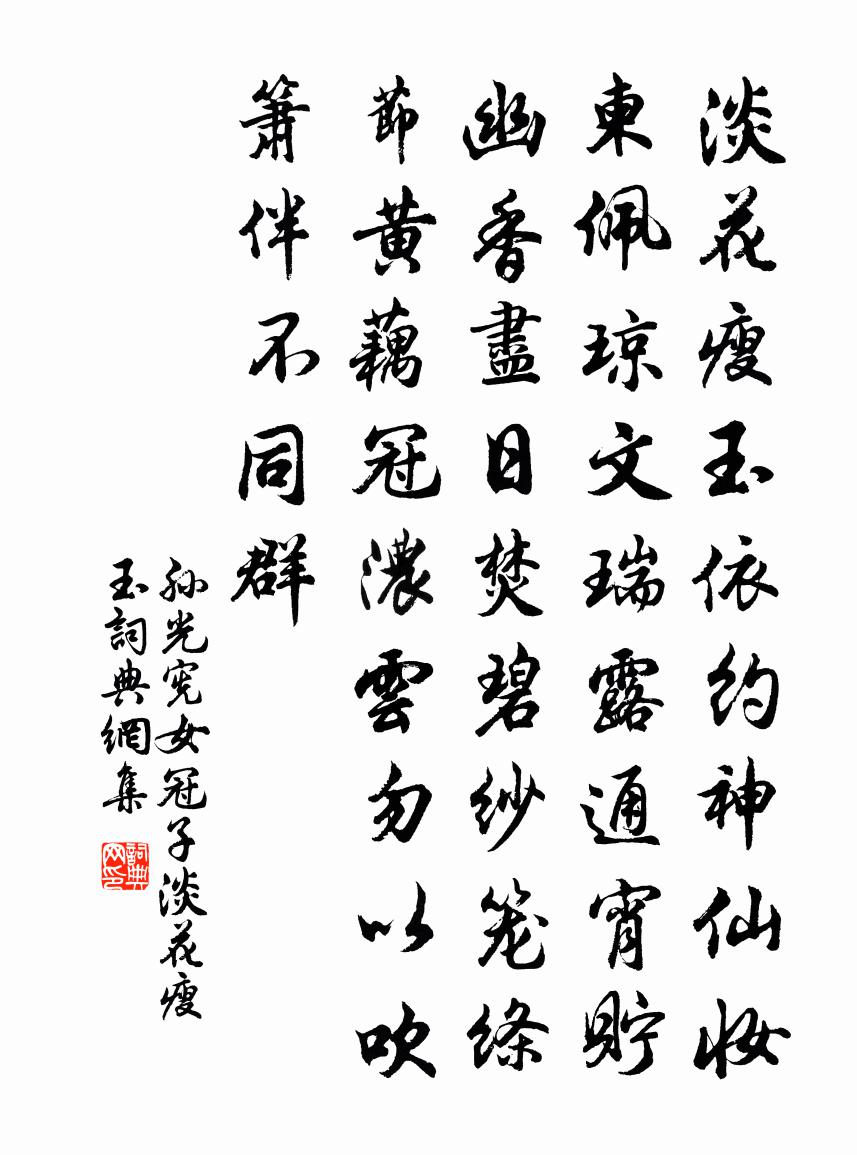 淡花瘦玉依约神仙妆
東佩琼文瑞露通宵貯
幽香盡日焚碧纱笼绦
節黄藕冠濃雲勿以吹
箫伴不同群
孙光宪女冠子淡花瘦
玉詞典網集
詞典网印